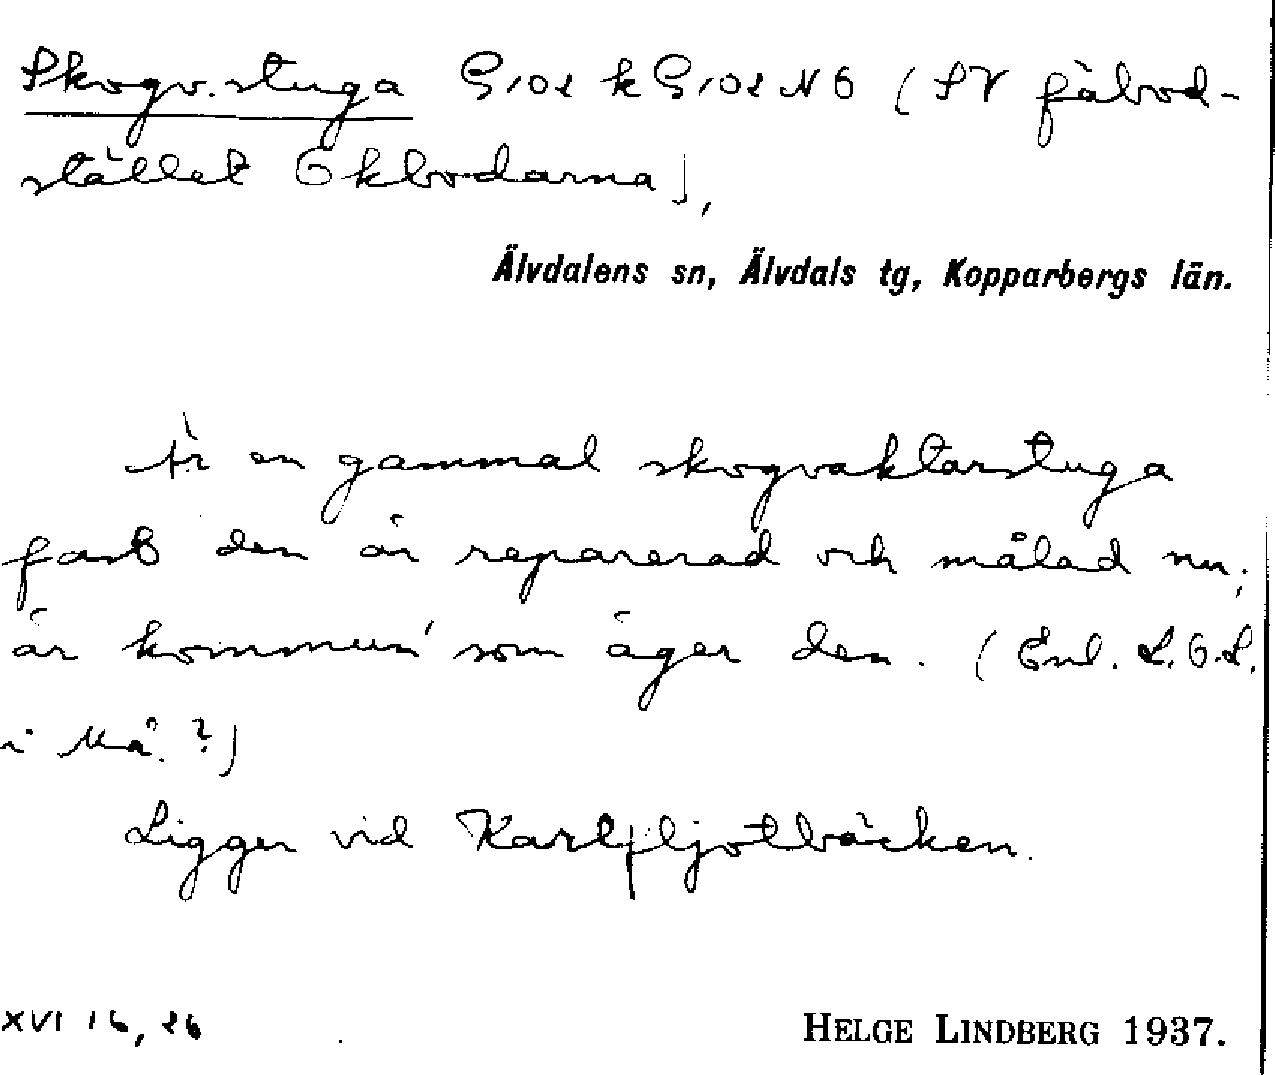 Skogv.stuga G 102 k G 102 NO (SV fäbod-
stället Ekbodarna),
Älvdalens sn, Älvdals tg, Kopparbergs län.
Är en gammal skogvaktarstuga
fast den är reparerad och målad nu;
är kommun' som äger den. (Enl. L.O.L.
i Må.?)
Ligger vid Karlfljotbäcken.
XVI 16, 26
HELGE LINDBERG 1937.